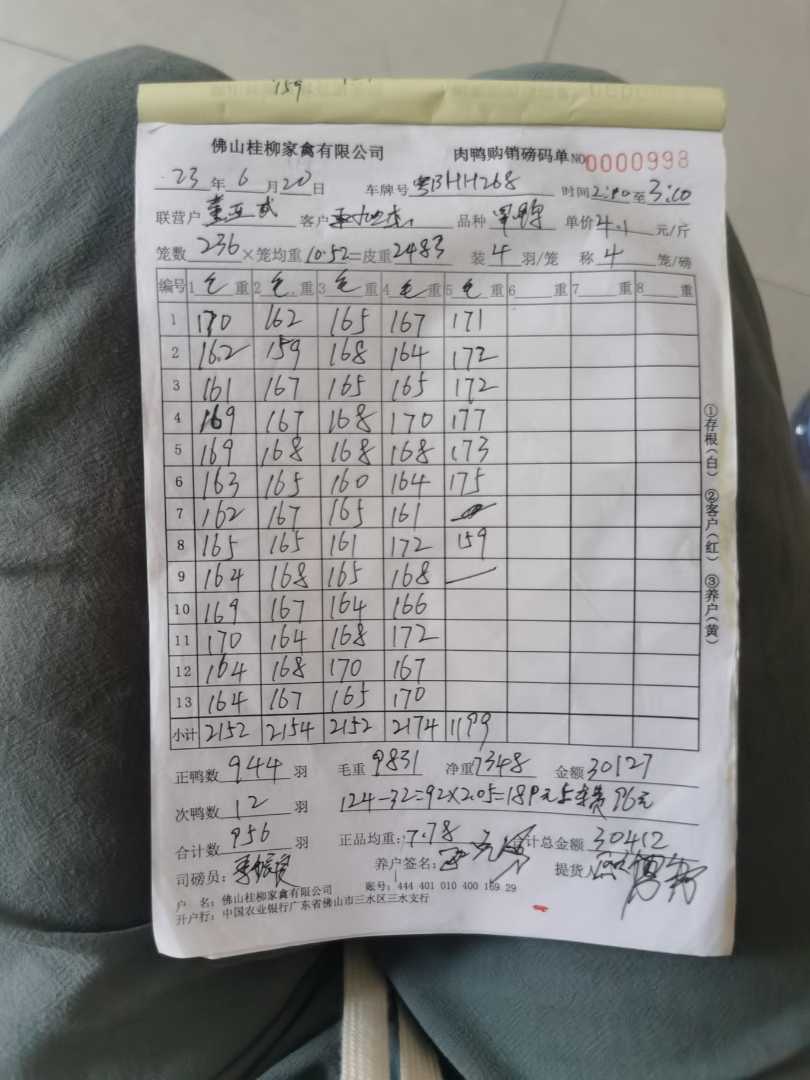 159
佛山桂柳家禽有限公司 肉鸭购销磅码单 NO 0000998
23年6月20日 车牌号 粤BHH268 时间2:00至3:00
联营户 客户 品种 单价4.1元/斤
笼数236×笼均重10.52=皮重2483 装4羽/笼 称4笼/磅
编号 1毛重 2毛重 3毛重 4毛重 5毛重 6重 7重 8重
1 170 162 165 167 171
2 162 159 168 164 172
3 161 167 165 165 172
4 169 167 168 170 177
5 169 168 168 168 173
6 163 165 160 164 175
7 162 167 165 161
8 165 165 161 172 159
9 164 168 165 168
10 169 167 164 166
11 170 164 168 172
12 164 168 170 167
13 164 167 165 170
小计 2152 2154 2152 2174 1199
正鸭数944羽 毛重9831 净重7348 金额30127
次鸭数12羽 124-32=92×2.05=189元 96元
合计数956羽 正品均重:7.78 合计总金额30412
司磅员: 养户签名: 提货人
户 名:佛山桂柳家禽有限公司 账号:444 401 010 400 169 29
开户行:中国农业银行广东省佛山市三水区三水支行
①存根(白) ②客户(红) ③养户(黄)